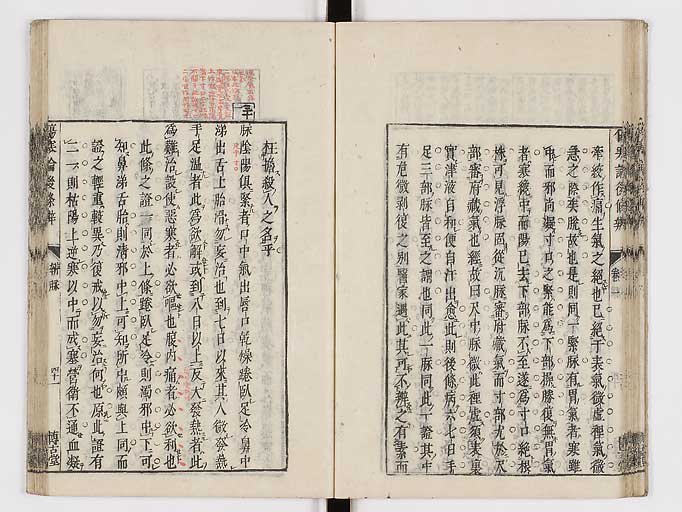 牽絞作痛生氣之絕也已絕于表氣微虛裡氣微
急之際乘脫故也是則同一緊脉有胃氣者寒雖
甲而邪尚凝寸口之緊能爲下部操勝復無胃氣
者寒纔中而陽已去下部脉不至遂爲寸口絕根
殊可見浮脉固從沉脉審府藏氣而寸部尤於尺
部審府藏氣也經故曰尺中脉微此裡虛須表裏
實津液自和便自汗出愈此則後條病六七日手
足三部脉皆至之謂也同此一脉同此一證其中
有危微剥復之別醫家遇此其可不辨之有素而
枉擔殺人之名乎
脉陰陽俱緊者口中氣出唇口乾燥踡臥足冷鼻中
涕出舌上胎滑勿妄治也到七日以來其人微發熱
手足溫者此爲欲解或到八日以上反大發熱者此
爲難治設使惡寒者必欲嘔也腹内痛者必欲利也
此條之證一同於上條踡臥足冷則濁邪中下可
知鼻涕舌胎則清邪中上可知所中頗與上同而
證之輕重較異乃復戒以勿妄治何也原此證有
二一則枯陽上逆寒以中而成塞營衛不通血凝
傷寒論後條辨
辨脉
四十一
博古堂